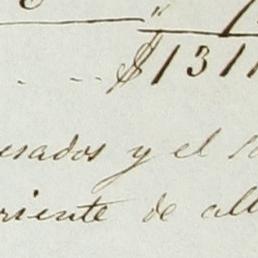 $1311
esados y el
riente de all